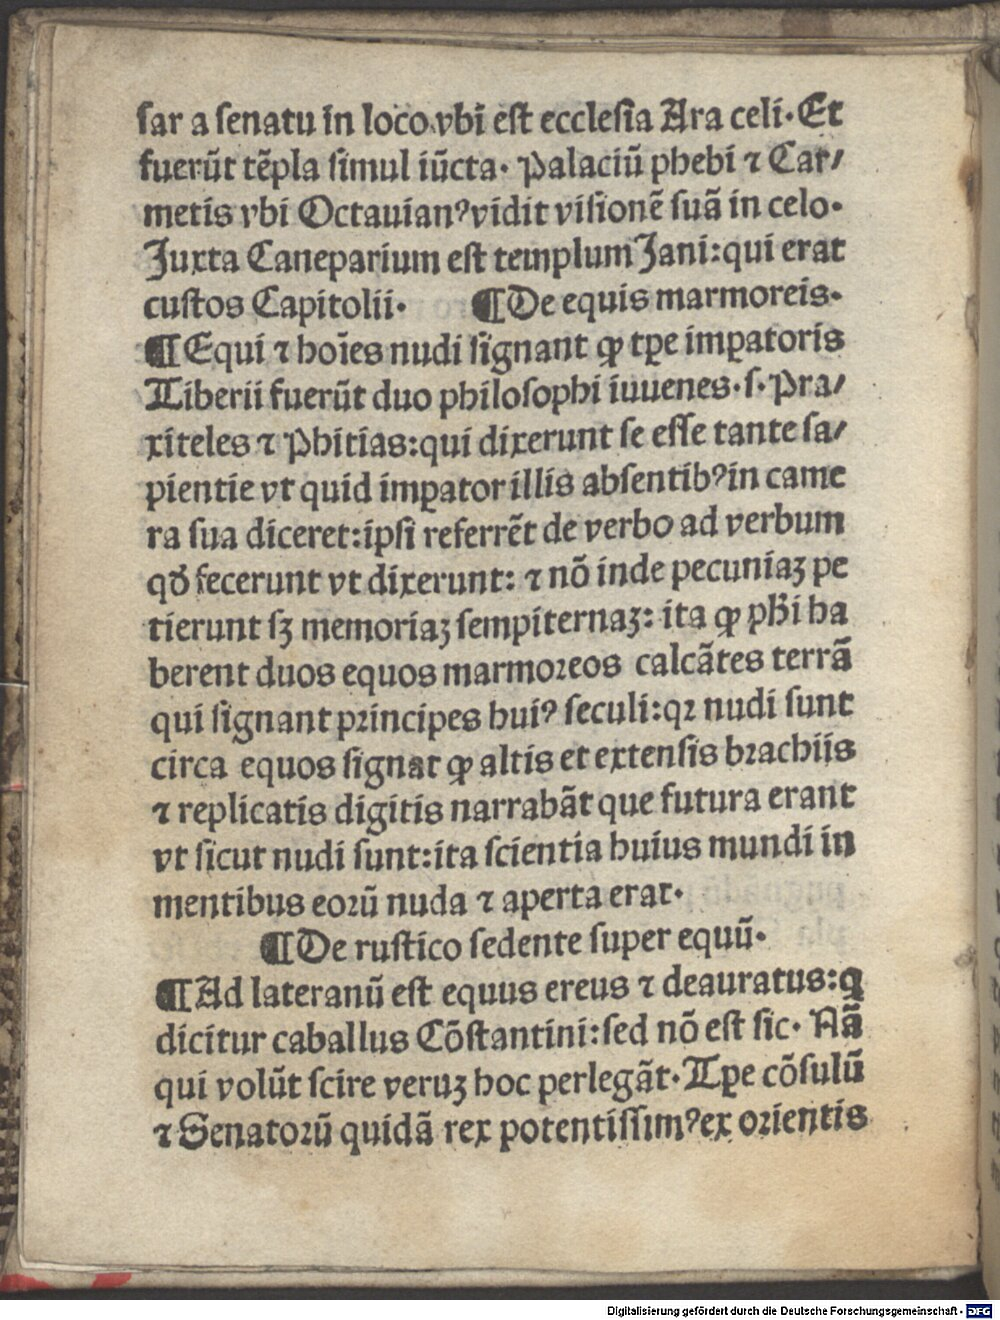 ſar a ſenatu in loco vbi eſt eccleſia Ara celi. Et
fuerūt tēpla ſimul iūcta. Palaciū phebi ⁊ Car/
metis vbi Octauianꝰ vidit viſionē ſuā in celo.
Juxta Caneparium eſt templum Jani: qui erat
cuſtos Capitolii. ¶ De equis marmoreis.
¶ Equi ⁊ hoīes nudi ſignant ꝙ tꝑe imꝑatoris
Tiberii fuerūt duo philoſophi iuuenes. ſ. Pra/
xiteles ⁊ Phitias: qui dixerunt ſe eſſe tante ſa/
pientie vt quid imꝑator illis abſentibꝰ in came
ra ſua diceret: ipſi referrēt de verbo ad verbum
qđ fecerunt vt dixerunt: ⁊ nō inde pecuniaꝫ pe
tierunt ſꝫ memoriaꝫ ſempiternaꝫ: ita ꝙ pħi ha
berent duos equos marmoreos calcātes terrā
qui ſignant principes huiꝰ ſeculi: qꝛ nudi ſunt
circa equos ſignat ꝙ altis et extenſis brachijs
⁊ replicatis digitis narrabāt que futura erant
vt ſicut nudi ſunt: ita ſcientia huius mundi in
mentibus eorū nuda ⁊ aperta erat.
¶ De ruſtico ſedente ſuper equū.
¶ Ad lateranū eſt equus ereus ⁊ deauratus: q
dicitur caballus Cōſtantini: ſed nō eſt ſic. Nā
qui volūt ſcire veruꝫ hoc perlegāt. Tꝑe cōſulū
⁊ Senatorū quidā rex potentiſſimꝰ ex orientis
Digitalisierung gefördert durch die Deutsche Forschungsgemeinschaft - DFG